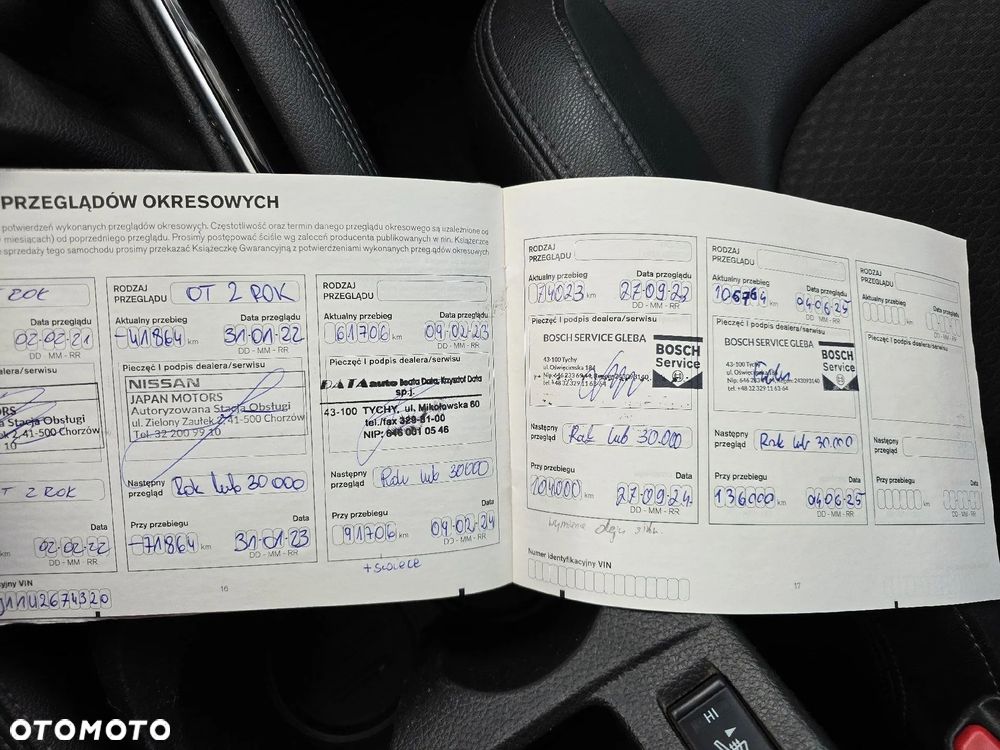 PRZEGLĄDÓW OKRESOWYCH
potwierdzeń wykonanych przeglądów okresowych. Częstotliwość oraz termin danego przeglądu okresowego są uzależnione od
miesiącach) od poprzedniego przeglądu. Prosimy postępować ściśle wg zaleceń producenta publikowanych w nin. Książeczce
sprzedaży tego samochodu prosimy przekazać Książeczkę Gwarancyjną z potwierdzeniami wykonanych przeglądów okresowych
ROK
Data przeglądu
02-02-21
DD - MM - RR
dealera/serwisu
ORS
Stacja Obsługi
2, 41-500 Chorzów
10
OT 2 ROK
Data
02-02-22
DD - MM - RR
VIN
RODZAJ
PRZEGLĄDU
OT 2 ROK
Aktualny przebieg
Data przeglądu
-41864 km
31-01-22
DD - MM - RR
Pieczęć I podpis dealera/serwisu
NISSAN
JAPAN MOTORS
Autoryzowana Stacja Obsługi
ul. Zielony Zaułek 2, 41-500 Chorzów
Tel. 32 200 99 10
Następny
przegląd
Rok lub 30 000
Przy przebiegu
Data
-71864 km
31-01-23
DD - MM - RR
16
RODZAJ
PRZEGLĄDU
Aktualny przebieg
Data przeglądu
61706 km
09-02-23
DD - MM - RR
Pieczęć I podpis dealera/serwisu
DATA auto Beata Data, Krzysztof Data
sp.j.
43-100 TYCHY, ul. Mikołowska 60
tel./fax 329-81-00
NIP: 646 001 05 46
Następny
przegląd
Rok lub 30 000
Przy przebiegu
Data
91706 km
09-02-24
DD - MM - RR
RODZAJ
PRZEGLĄDU
Aktualny przebieg
Data przeglądu
74023 km
DD - MM - RR
Pieczęć I podpis dealera/serwisu
BOSCH SERVICE GLEBA
BOSCH
Service
43-100 Tychy
Następny
przegląd
Rok lub 30.000
Przy przebiegu
Data
104000 km
27-09-24
DD - MM - RR
wymiana oleju
Numer identyfikacyjny VIN
RODZAJ
PRZEGLĄDU
Aktualny przebieg
Data przeglądu
km
DD - MM - RR
Pieczęć I podpis dealera/serwisu
BOSCH SERVICE GLEBA
BOSCH
Service
43-100 Tychy
Następny
przegląd
Rok lub 30.000
Przy przebiegu
Data
136000 km
04-06-25
DD - MM - RR
17
RODZAJ
PRZEGLĄDU
Aktualny przebieg
Data przeglądu
km
DD - MM - RR
Pieczęć I podpis dealera/serwisu
Następny
przegląd
Przy przebiegu
Data
km
DD - MM - RR
HI
OTOMOTO